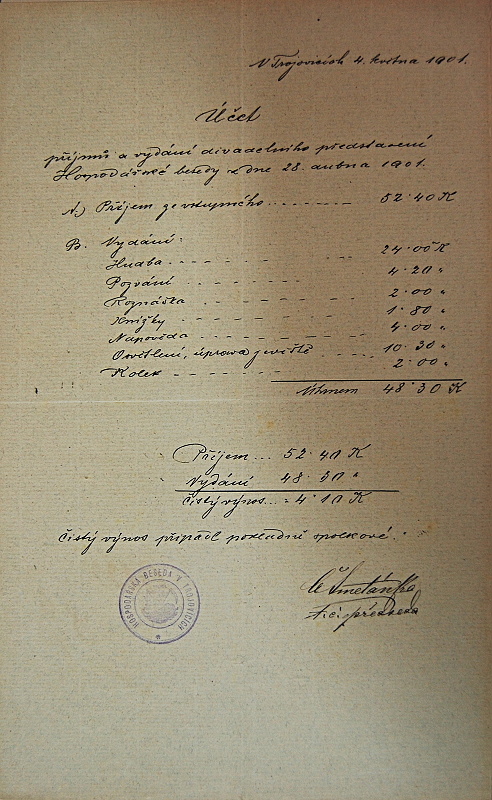 V Trojovicích 4. května 1901.
Účet
příjmů a vydání divadelního představení
Hospodářské besedy z dne 28. dubna 1901.
A.) Příjem ze vstupného - - - - - - - 52·40 K
B. Vydání:
Hudba - - - - - - - - 24·00 K
Pozvání - - - - - - - - 4·20 "
Roznáška - - - - - - - - 2·00 "
Knížky - - - - - - - - 1·80 "
Napověda - - - - - - - - 4·00 "
Osvětlení, úprava jeviště - - - - 10·30 "
Kolek - - - - - - - - 2·00 "
Úhrnem 48·30 K
Příjem... 52·40 K
Vydání 48·30 "
Čistý výnos... 4·10 K
Čistý výnos připadl pokladně spolkové.
HOSPODÁŘSKÁ BESEDA V TROJOVICÍCH
Smetánka
předseda